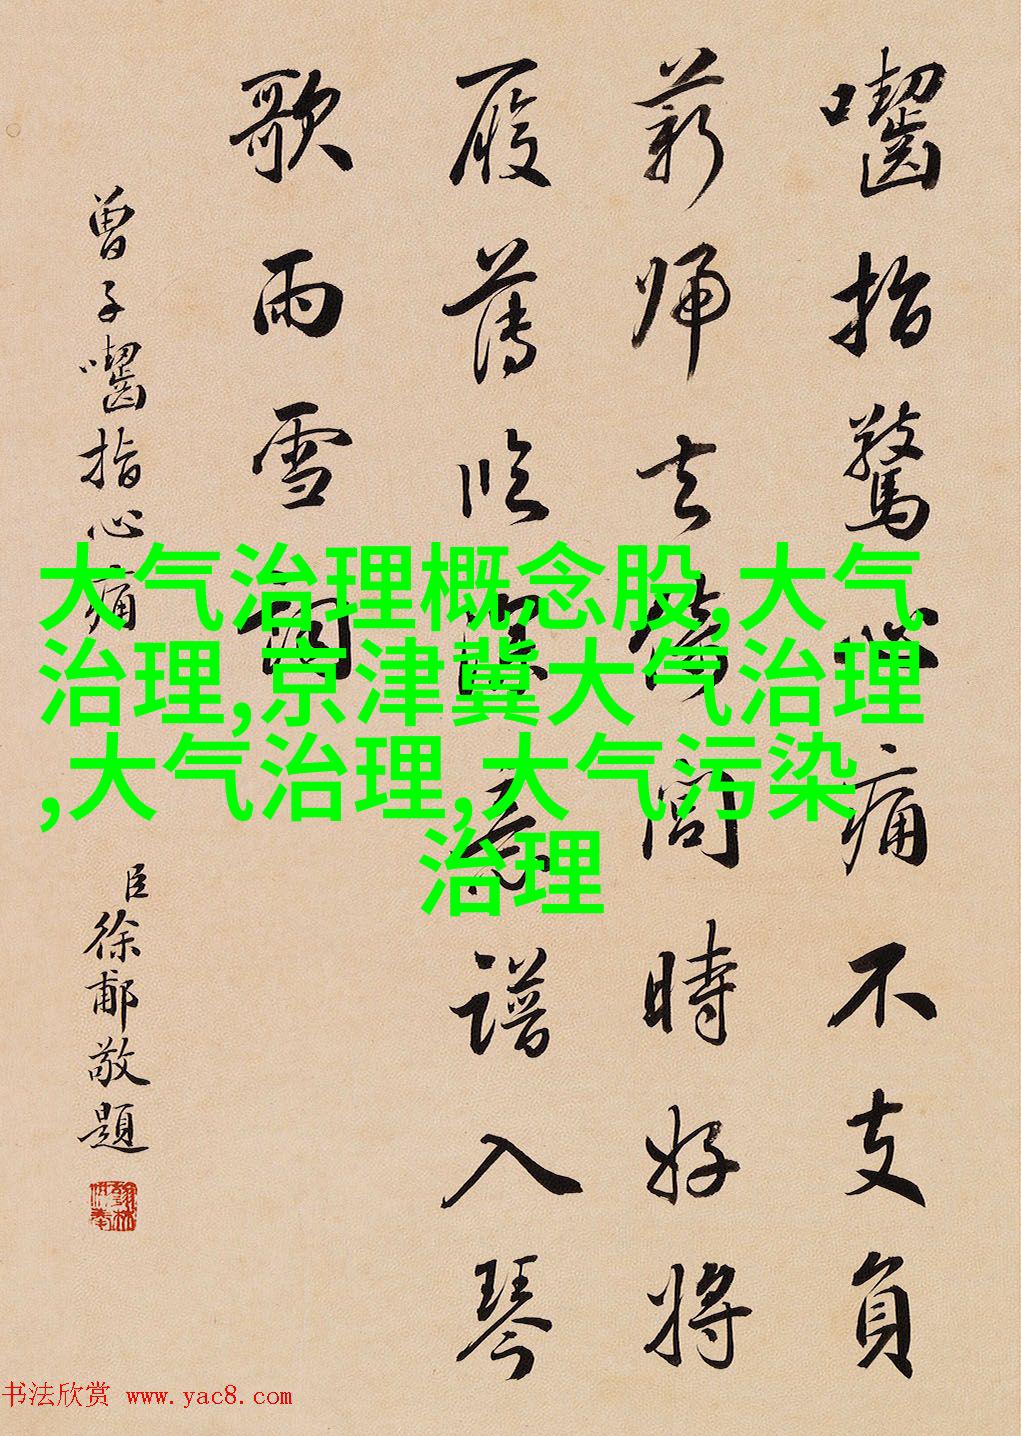 囓指驚心痛不支負
薪歸去問時好將
履薄臨深意譜入琴
歌雨雪
曾子囓指心痛
臣徐郙敬題
大气治理概念股,大气
治理,京津冀大气治理
,大气治理,大气污染
治理
书法欣赏 www.yac8.com